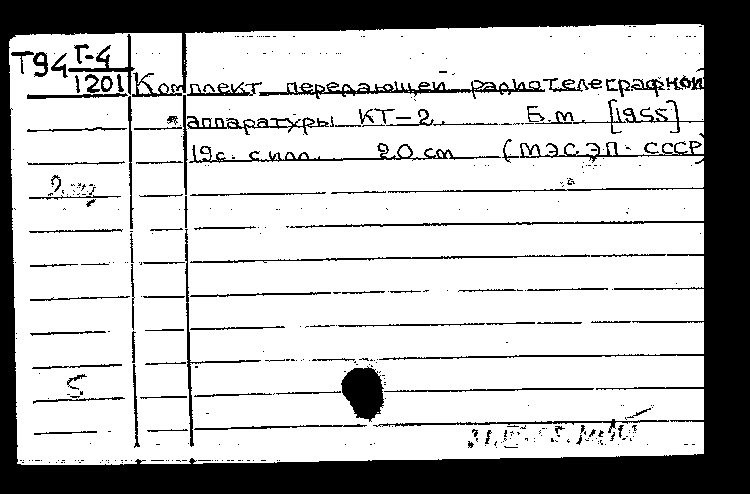 Т94 Т-4
1201 Комплект передающей радиотелеграфной
аппаратуры КТ-2. Б.м. [1955]
19с. с илл. 20 см (МЭСЭП. СССР)
S